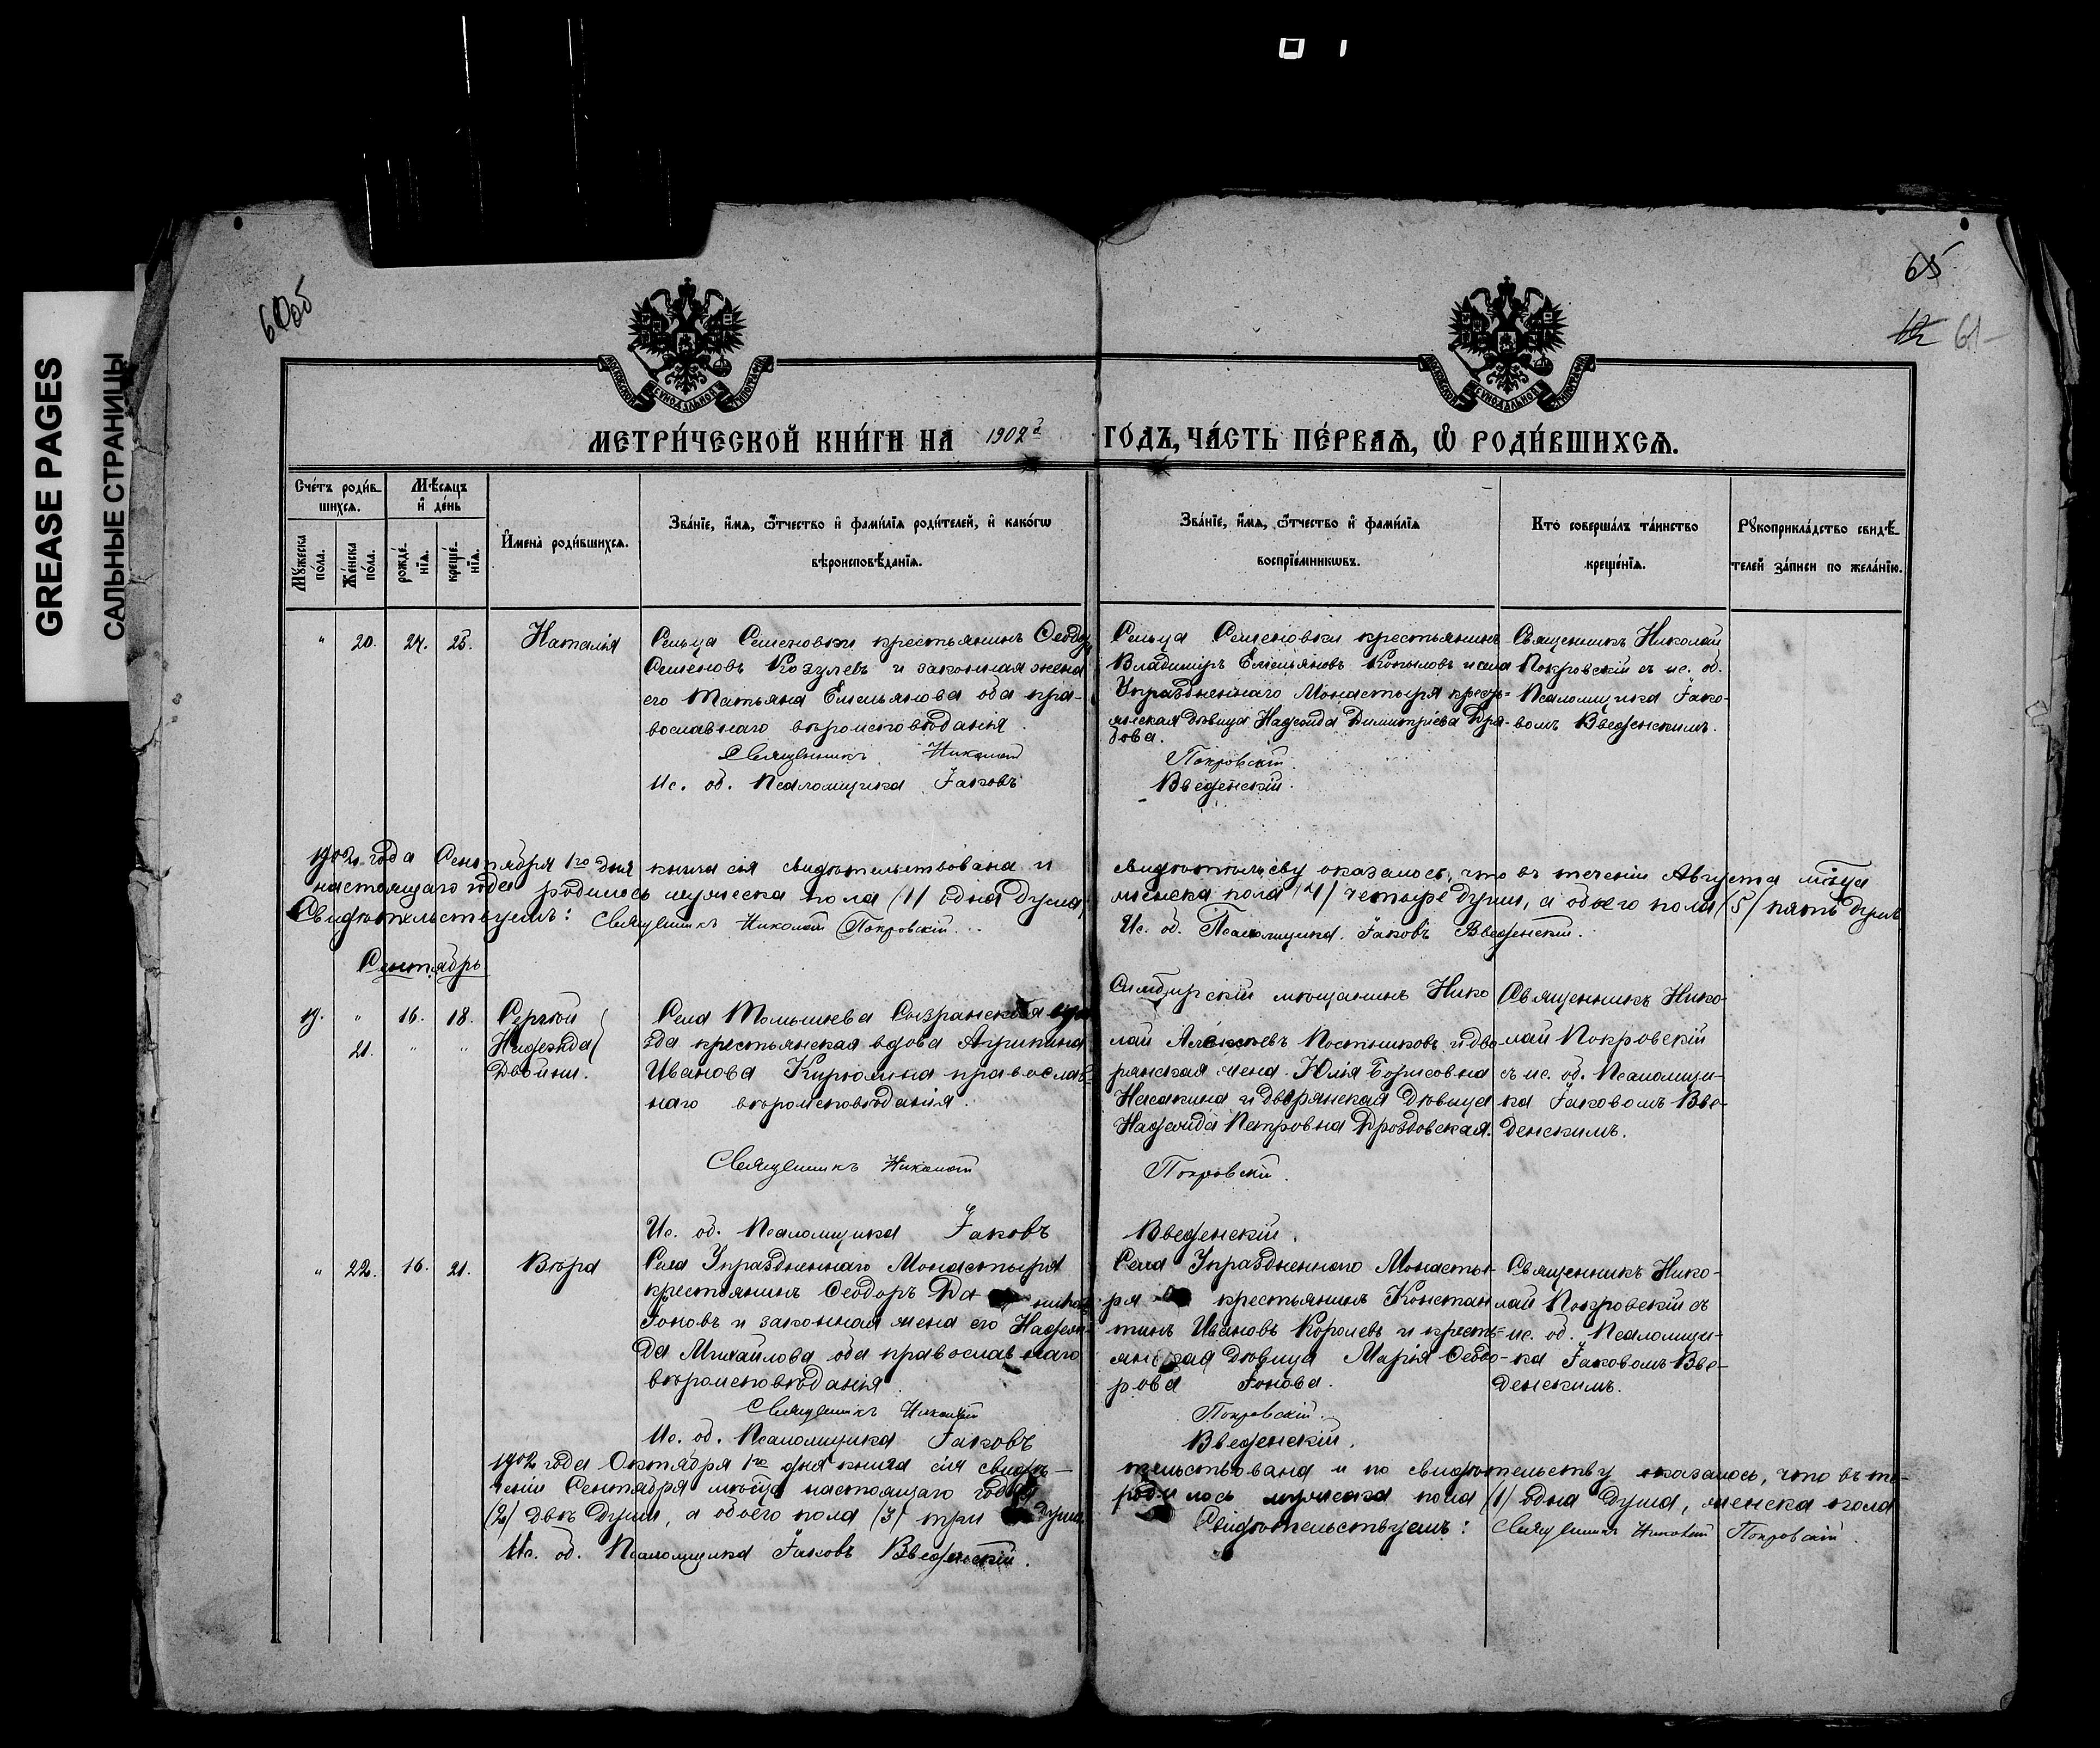 GREASE PAGES
САЛЬНЫЕ СТРАНИЦЫ
60об
65
12 61
МЕТРИ́ЧЕСКОЙ КНИ́ГИ НА 1902й ГО́ДЪ, ЧА́СТЬ ПЕ́РВАѦ, Ѽ РОДИ́ВШИХСѦ.
Сче́тъ роди́в-
шихсѧ.
Мѣ́сѧцъ
и҆ де́нь
Мꙋ́жеска по́ла.
Же́нска по́ла.
рожде́-нїѧ.
креще́-нїѧ.
И҆мена̀ роди́вшихсѧ.
Зва́нїе, и҆́мѧ, ѻ҆́тчество и҆ фами́лїѧ роди́телей, и҆ како́гѡ
вѣроисповѣ́данїѧ.
Зва́нїе, и҆́мѧ, ѻ҆́тчество и҆ фами́лїѧ
воспрїе́мникѡвъ.
Кто̀ соверша́лъ та́инство
креще́нїѧ.
Рꙋкоприкла́дство свидѣ́-
телей за́писи по жела́нїю.
" 20. 24. 25. Наталія
Сельца Семеновки крестьянинъ Ѳеодоръ
Семеновъ Козулевъ и законная жена
его Татьяна Емельянова оба пра-
вославнаго вѣроисповѣданія.
Священникъ Николай
Ис. об. Псаломщика Іаковъ
Сельца Семеновки крестьянинъ
Владиміръ Емельяновъ Копыловъ и села
Упраздненнаго Монастыря кресть-
янская дѣвица Надежда Димитріева
Покровскій.
Введенскій.
Священникъ Николай
Покровскій съ ис. об.
Псаломщика Іако-
вомъ Введенскимъ.
1902 года Сентября 1го дня книга сія свидѣтельствована и свидѣтельству оказалось, что въ теченіи Августа мѣсяца
настоящаго года родилось мужеска пола /1/ одна душа, женска пола /4/ четыре души, а обоего пола /5/ пять душъ
Свидѣтельствуемъ: Священникъ Николай Покровскій. Ис. об. Псаломщика Іаковъ Введенскій.
Сентябрь
19. " 16. 18. Сергѣй
21. " " Надежда
Двойни.
Села Томышева Сызранскаго уѣ
зда крестьянская вдова Агрипина
Иванова Кирюхина православ-
наго вѣроисповѣданія.
Священникъ Николай
Ис. об. Псаломщика Іаковъ
Симбирскій мѣщанинъ Нико
лай Алексѣевъ Постниковъ и дво-
рянская жена Юлія Борисовна
и дворянская дѣвица
Надежда Петровна Дроздовская.
Покровскій.
Введенскій.
Священникъ Нико-
лай Покровскій
съ ис. об. Псаломщи-
ка Іаковомъ Вве-
денскимъ.
" 22. 16. 21. Вѣра
Села Упраздненнаго Монастыря
крестьянинъ Ѳеодоръ
Іоновъ и законная жена его Надеж-
да Михайлова оба православнаго
вѣроисповѣданія
Священникъ Николай
Ис. об. Псаломщика Іаковъ
Села Упраздненнаго Монасты-
ря крестьянинъ Констан
тинъ Ивановъ Королевъ и кресть-
янская дѣвица Марія Ѳеодо-
рова Іонова.
Покровскій.
Введенскій.
Священникъ Нико-
лай Покровскій съ
ис. об. Псаломщи-
ка Іаковомъ Вве-
денскимъ.
1902 года Октября 1го дня книга сія свидѣ-тельствована и по свидѣтельству оказалось, что въ те-
ченіи Сентября мѣсяца настоящаго года родилось мужеска пола /1/ одна душа, женска пола
/2/ двѣ души, а обоего пола /3/ три души. Свидѣтельствуемъ: Священникъ Николай Покровскій.
Ис. об. Псаломщика Іаковъ Введенскій.